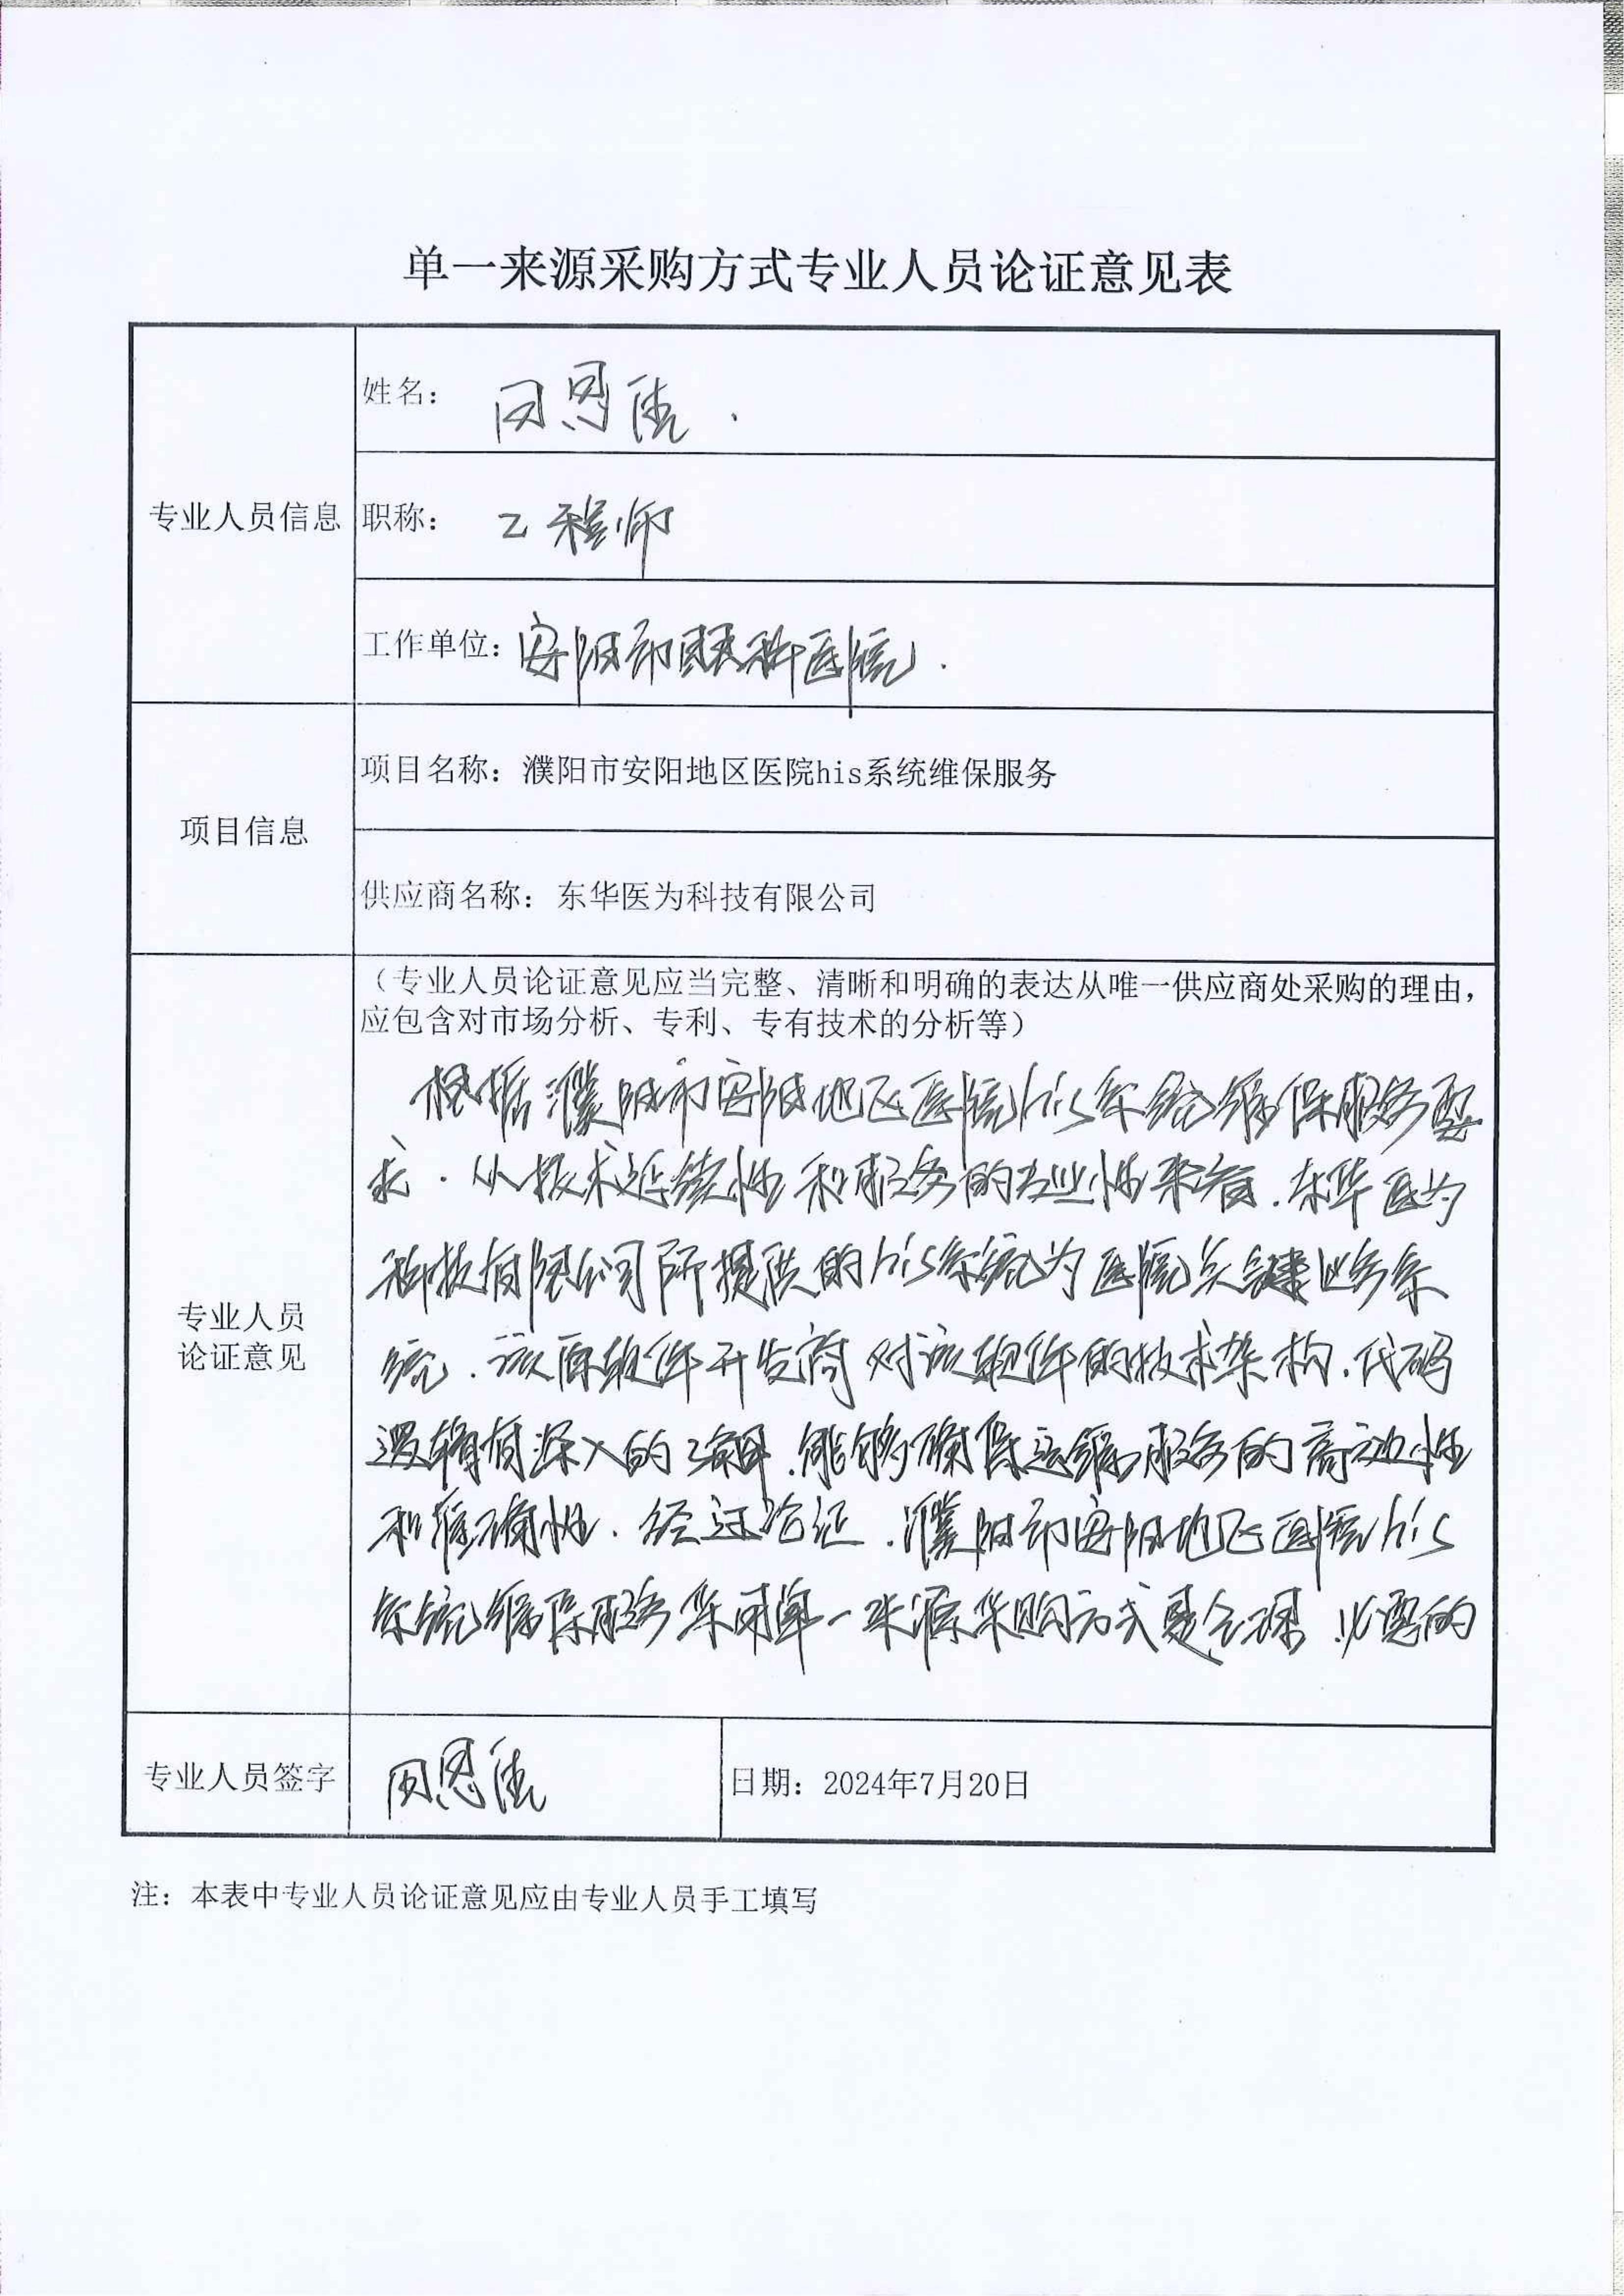 单一来源采购方式专业人员论证意见表
专业人员信息
姓名：
职称： 工程师
工作单位：安阳市眼科医院.
项目信息
项目名称：濮阳市安阳地区医院his系统维保服务
供应商名称：东华医为科技有限公司
专业人员
论证意见
（专业人员论证意见应当完整、清晰和明确的表达从唯一供应商处采购的理由，
应包含对市场分析、专利、专有技术的分析等）
根据濮阳市安阳地区医院his系统维保服务要
求.从技术延续性和服务的专业性来看.东华医为
科技有限公司所提供的his系统为医院关键业务系
统.该原软件开发商对该软件的技术架构.代码
逻辑有深入的了解.能够确保运维服务的高效性
和准确性.经过论证.濮阳市安阳地区医院his
系统维保服务采用单一来源采购方式是合理.必要的
专业人员签字
日期：2024年7月20日
注：本表中专业人员论证意见应由专业人员手工填写